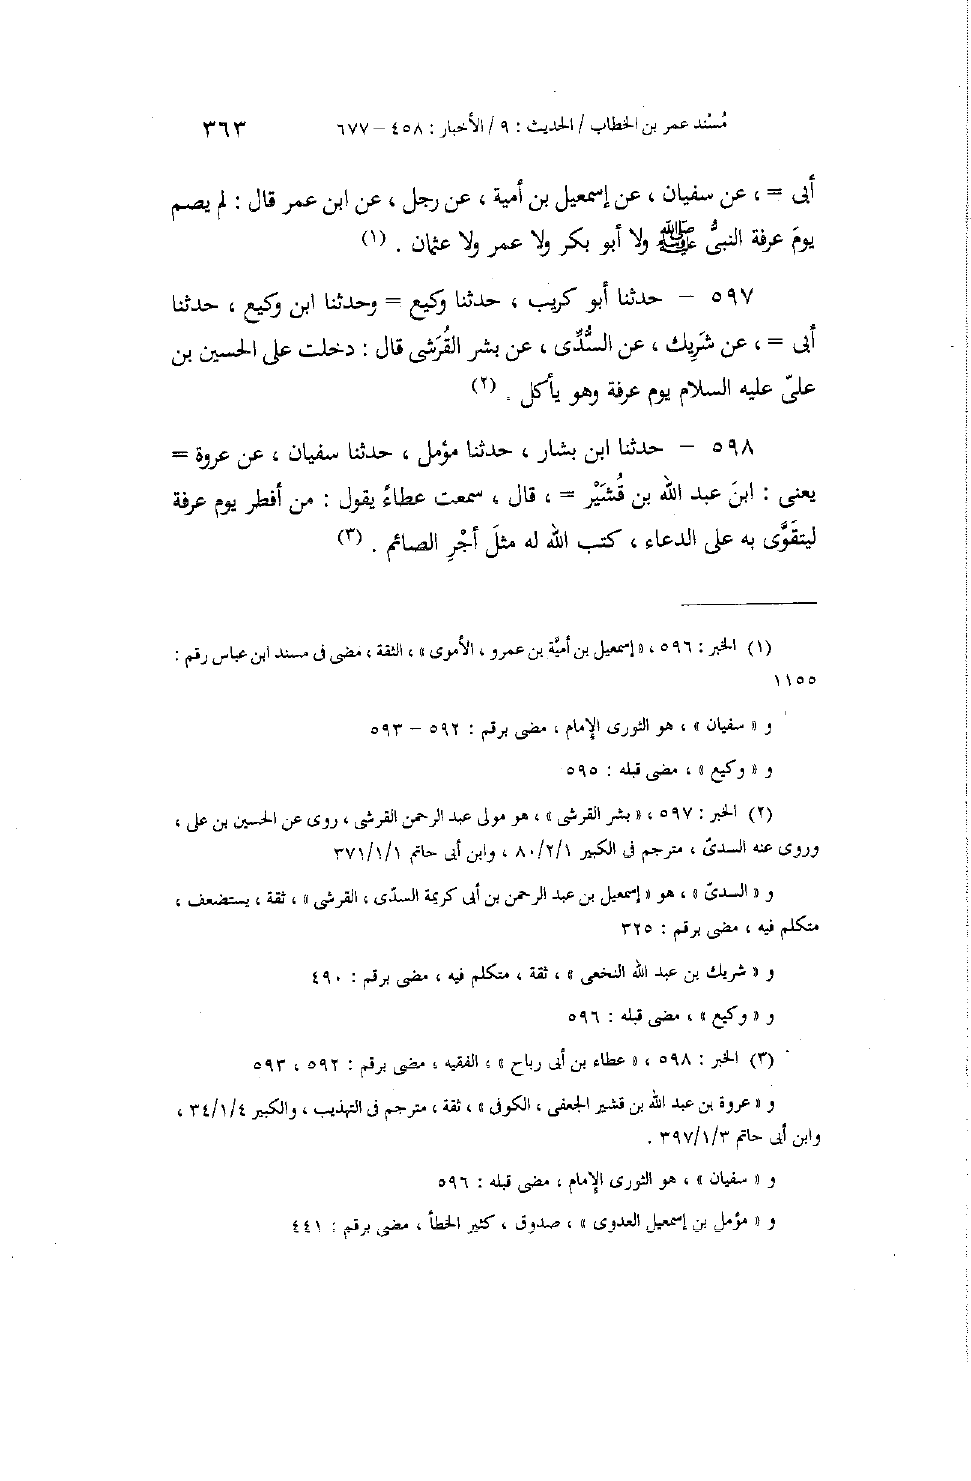 مُسْند عمر بن الخطاب / الحديث : ٩ / الأخبار : ٤٥٨ – ٦٧٧ ٣٦٣
أبى = ، عن سفيان ، عن إسمعيل بن أمية ، عن رجل ، عن ابن عمر قال : لم يصم
يومَ عرفة النبىُّ ﷺ ولا أبو بكر ولا عمر ولا عثمان . (١)
٥٩٧ – حدثنا أبو كريب ، حدثنا وكيع = وحدثنا ابن وكيع ، حدثنا
أبى = ، عن شَرِيك ، عن السُّدِّى ، عن بشر القُرَشى قال : دخلت على الحسين بن
علىّ عليه السلام يوم عرفة وهو يأكل . (٢)
٥٩٨ – حدثنا ابن بشار ، حدثنا مؤمل ، حدثنا سفيان ، عن عروة =
يعنى : ابنَ عبد الله بن قُشَيْر = ، قال ، سمعت عطاءً يقول : من أفطر يوم عرفة
ليتقَوَّى به على الدعاء ، كتب الله له مثلَ أجْرِ الصائم . (٣)
(١) الخبر : ٥٩٦ ، « إسمعيل بن أميَّة بن عمرو ، الأموى » ، الثقة ، مضى فى مسند ابن عباس رقم :
١١٥٥
و « سفيان » ، هو الثورى الإمام ، مضى برقم : ٥٩٢ – ٥٩٣
و « وكيع » ، مضى قبله : ٥٩٥
(٢) الخبر : ٥٩٧ ، « بشر القرشى » ، هو مولى عبد الرحمن القرشى ، روى عن الحسين بن على ،
وروى عنه السدىّ ، مترجم فى الكبير ٨٠/٢/١ ، وابن أبى حاتم ٣٧١/١/١
و « السدىّ » ، هو « إسمعيل بن عبد الرحمن بن أبى كريمة السدّى ، القرشى » ، ثقة ، يستضعف ،
متكلم فيه ، مضى برقم : ٣٢٥
و « شريك بن عبد الله النخعى » ، ثقة ، متكلم فيه ، مضى برقم : ٤٩٠
و « وكيع » ، مضى قبله : ٥٩٦
(٣) الخبر : ٥٩٨ ، « عطاء بن أبى رباح » ، الفقيه ، مضى برقم : ٥٩٢ ، ٥٩٣
و « عروة بن عبد الله بن قشير الجعفى ، الكوفى » ، ثقة ، مترجم فى التهذيب ، والكبير ٣٤/١/٤ ،
وابن أبى حاتم ٣٩٧/١/٣ .
و « سفيان » ، هو الثورى الإمام ، مضى قبله : ٥٩٦
و « مؤمل بن إسمعيل العدوى » ، صدوق ، كثير الخطأ ، مضى برقم : ٤٤١